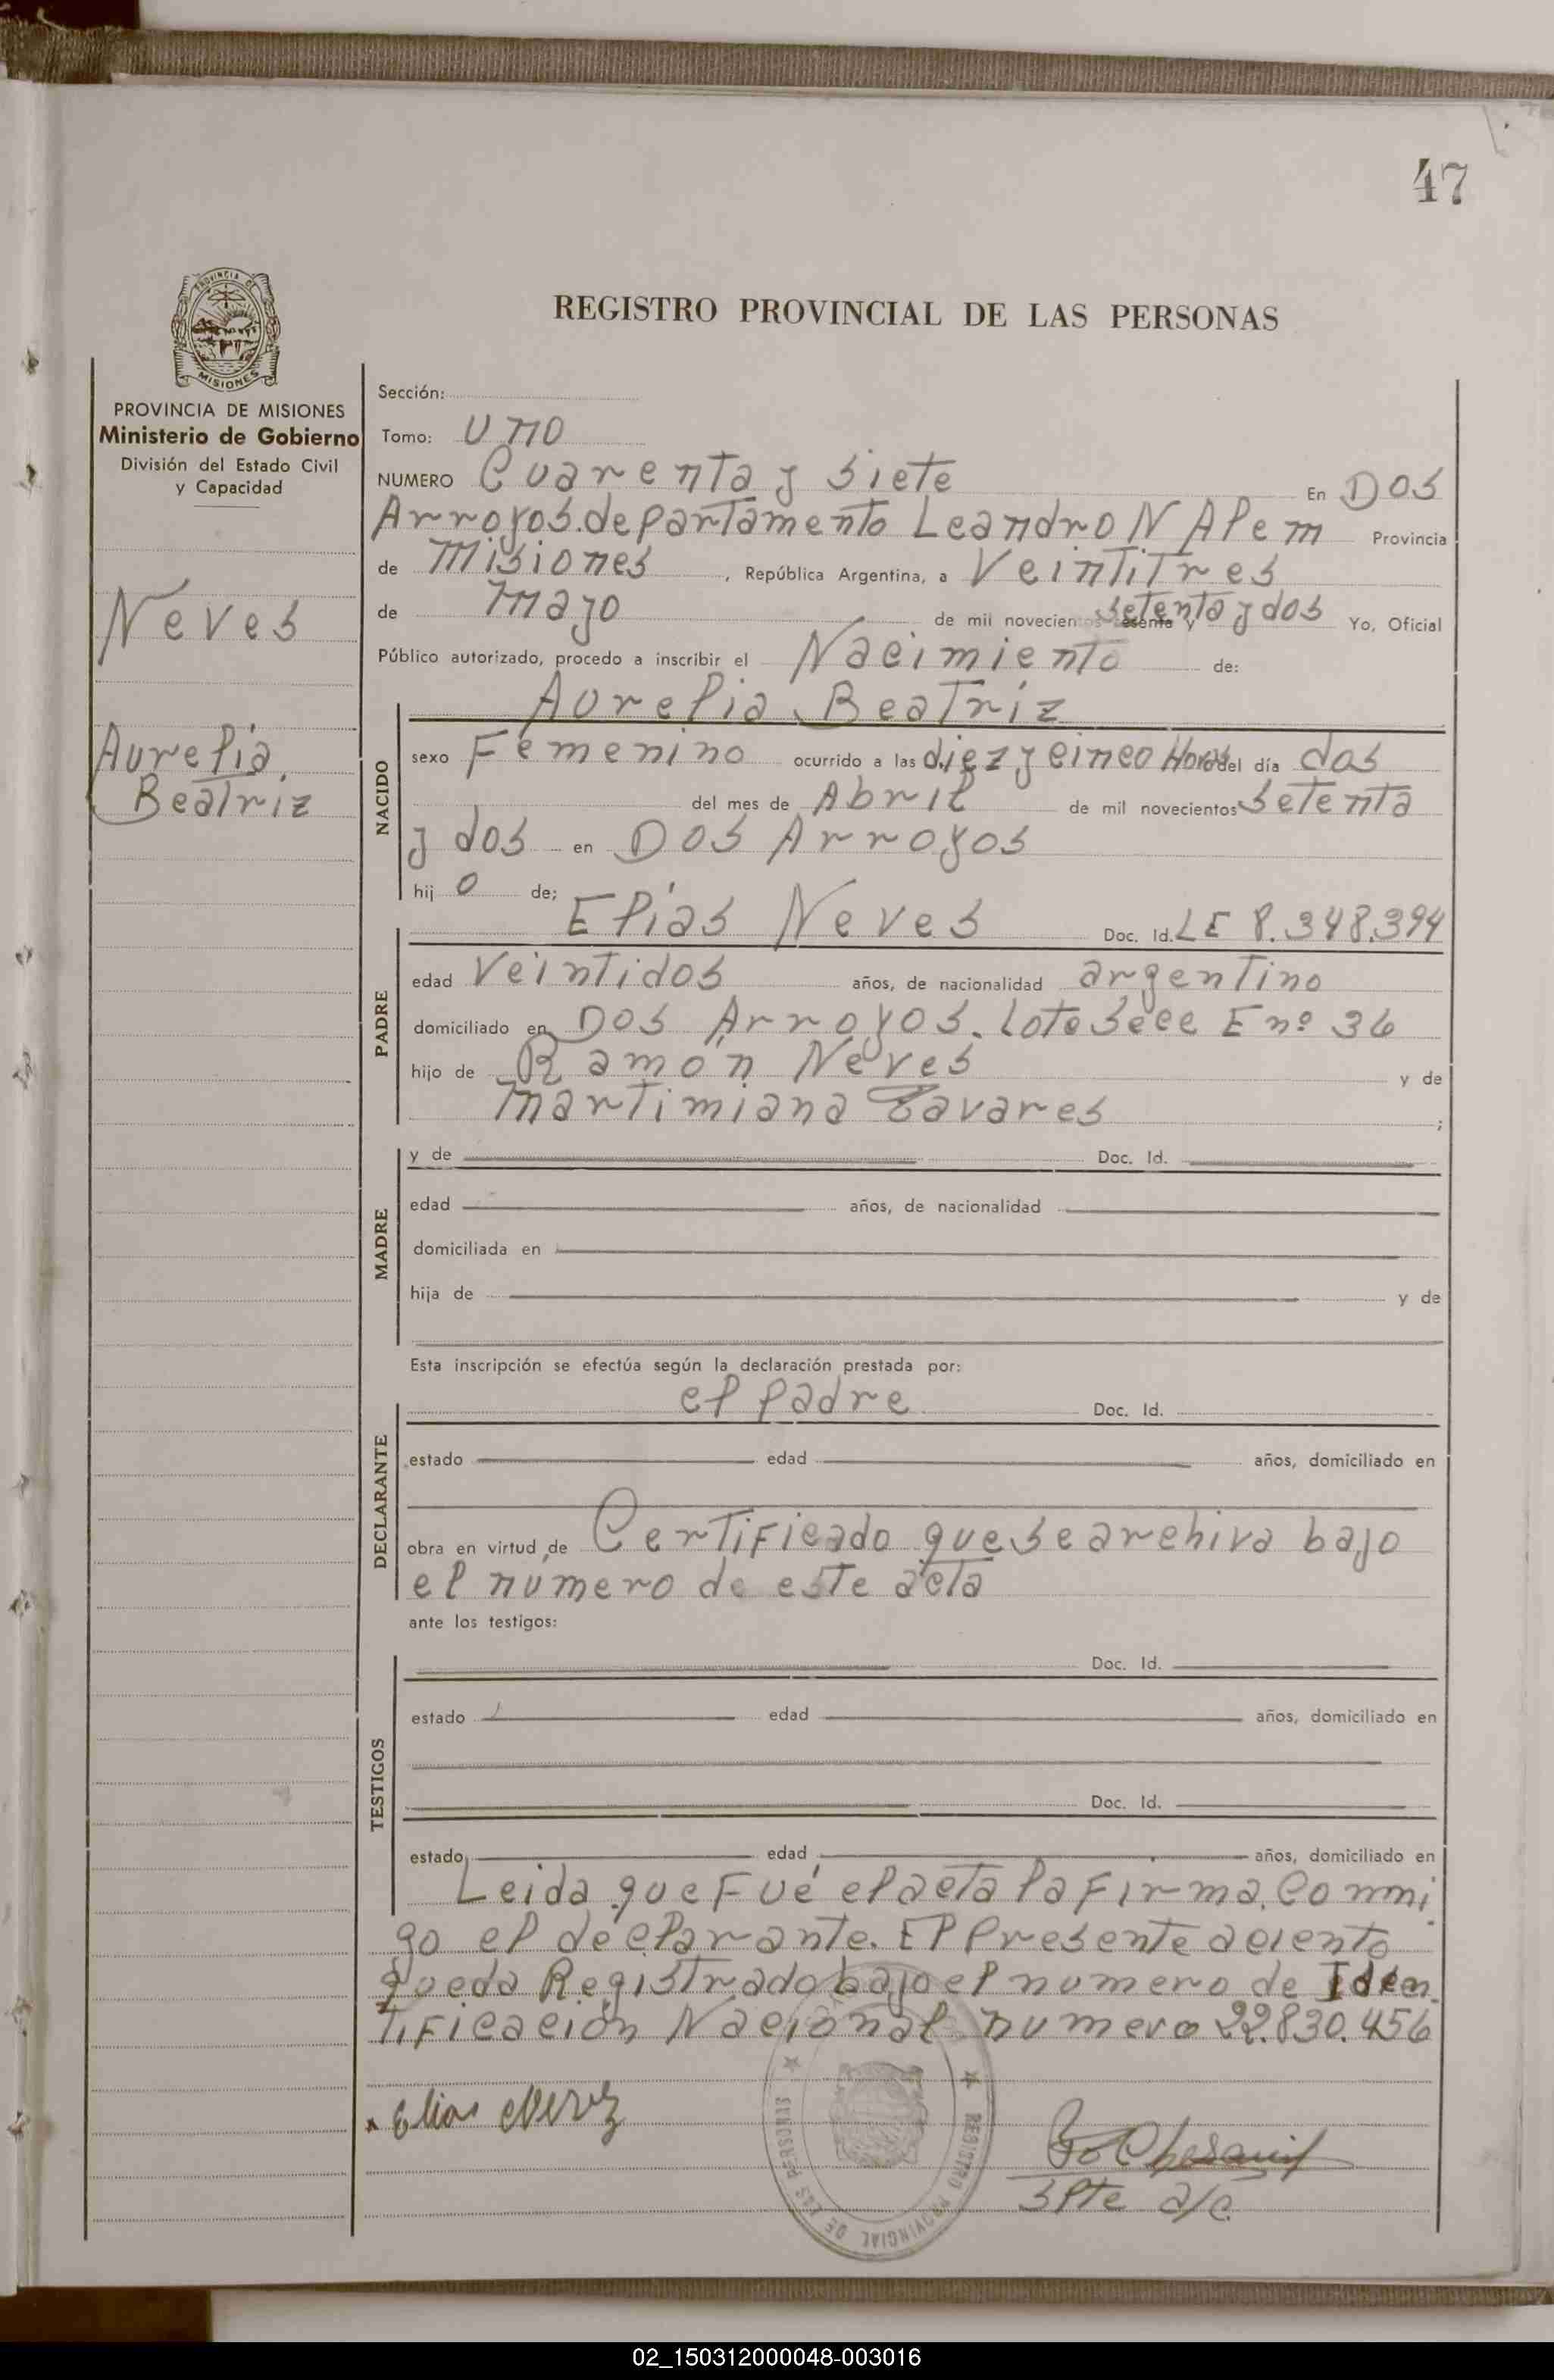 47
PROVINCIA DE
MISIONES
REGISTRO PROVINCIAL DE LAS PERSONAS
PROVINCIA DE MISIONES
Ministerio de Gobierno
División del Estado Civil
y Capacidad
Neves
Aurelia
Beatriz
Sección:
Tomo: uno
NUMERO Cuarenta y siete En Dos
Arroyos. departamento Leandro N Alem Provincia
de Misiones, República Argentina, a Veintitres
de mayo de mil novecientos setenta y dos Yo, Oficial
Público autorizado, procedo a inscribir el Nacimiento de:
Aurelia Beatríz
NACIDO
sexo Femenino ocurrido a las diez y cinco Horas del día dos
del mes de Abril de mil novecientos setenta
y dos en Dos Arroyos
hij o de;
Elías Neves Doc. Id. LE 8.348.394
PADRE
edad Veintidos años, de nacionalidad argentino
domiciliado en Dos Arroyos. Lote Secc E nº 36
hijo de Ramón Neves y de
Martimiana Tavares ;
MADRE
y de Doc. Id.
edad años, de nacionalidad
domiciliada en
hija de y de
Esta inscripción se efectúa según la declaración prestada por:
el padre Doc. Id.
DECLARANTE
estado edad años, domiciliado en
obra en virtud de Certificado que se archiva bajo
el numero de este acta
ante los testigos:
TESTIGOS
Doc. Id.
estado edad años, domiciliado en
Doc. Id.
estado edad años, domiciliado en
Leida que Fué el acta la Firma, Conmi
go el declarante. El Presente aciento
queda Registrado bajo el numero de Iden
tificación Nacional numero 22.830.456
Elias Nevez
REGISTRO PROVINCIAL DE LAS PERSONAS
Spte a/c.
02_150312000048-003016